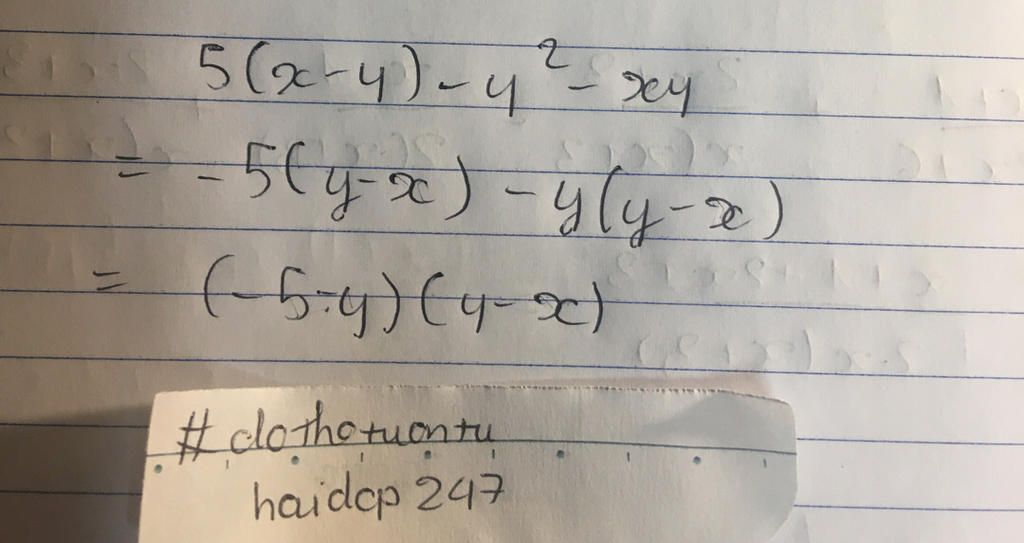 5(x-y)-y²-xy
= -5(y-x)-y(y-x)
= (-5-y)(y-x)
#dothotuontu
haidcp247